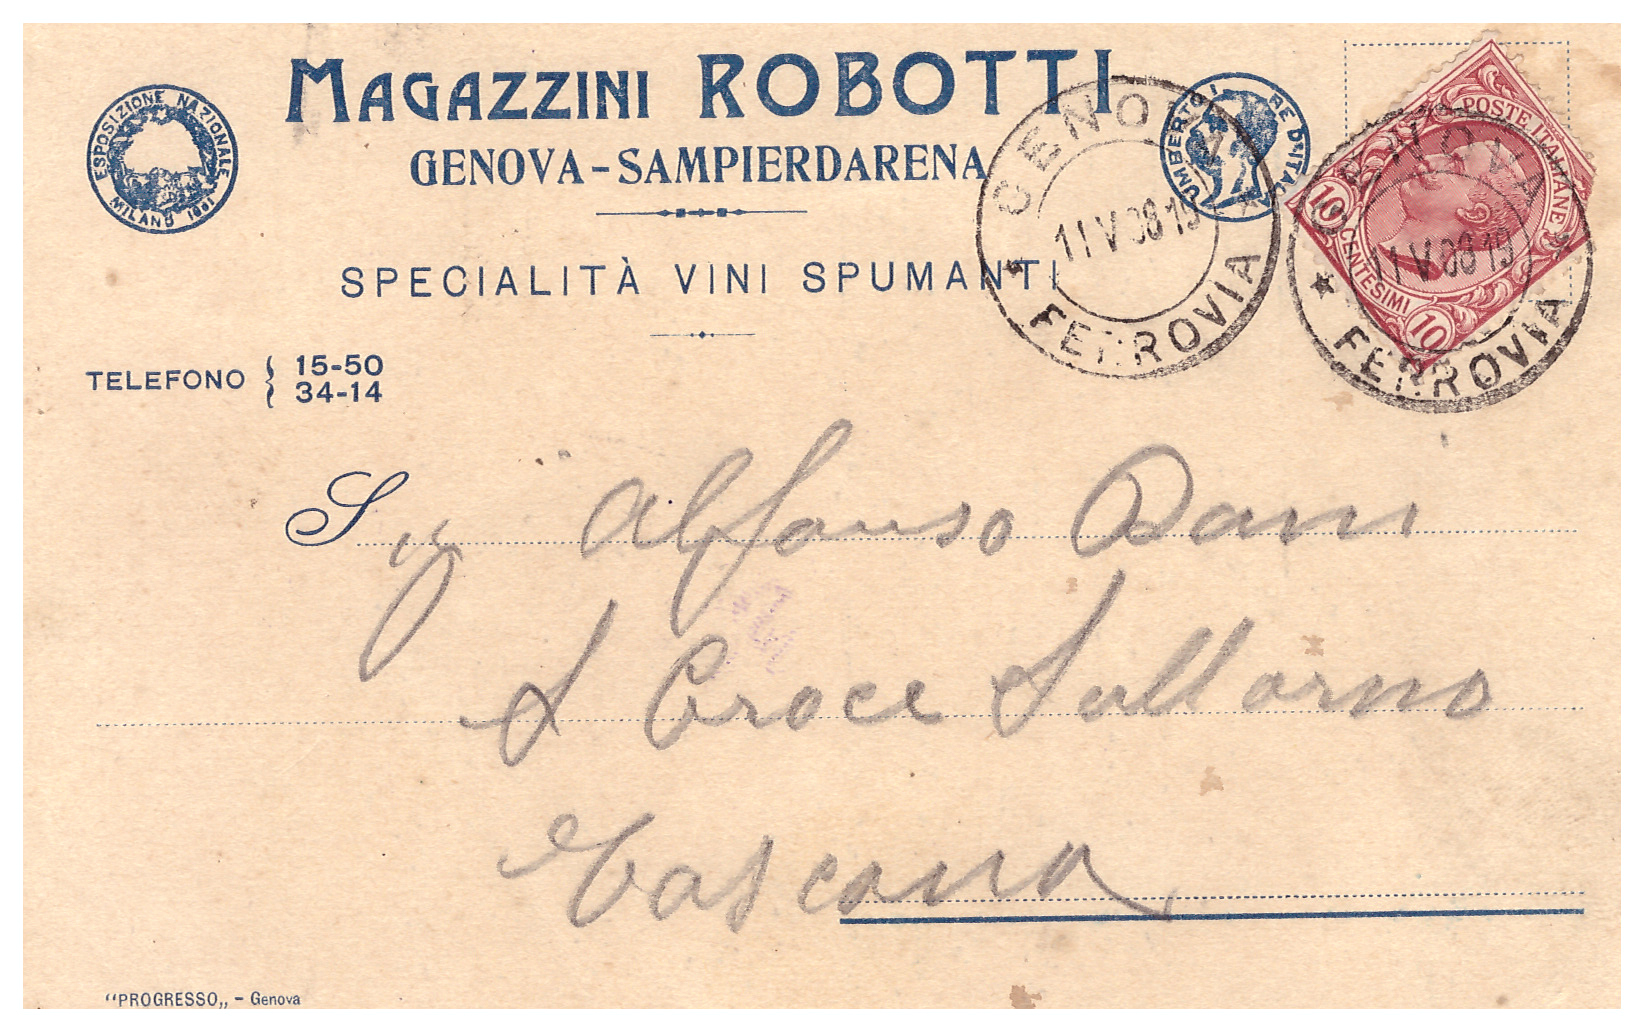 MAGAZZINI ROBOTTI
GENOVA-SAMPIERDARENA
ESPOSIZIONE NAZIONALE
MILANO 1881
UMBERTO I RE D'ITALIA
SPECIALITÀ VINI SPUMANTI
TELEFONO { 15-50
34-14
POSTE ITALIANE
10 CENTESIMI 10
GENOVA
11 V 08 19
FERROVIA
GENOVA
11 V 08 19
FERROVIA
Sig Alfonso Dani
S Croce Sull'arno
Toscana
“PROGRESSO„ - Genova